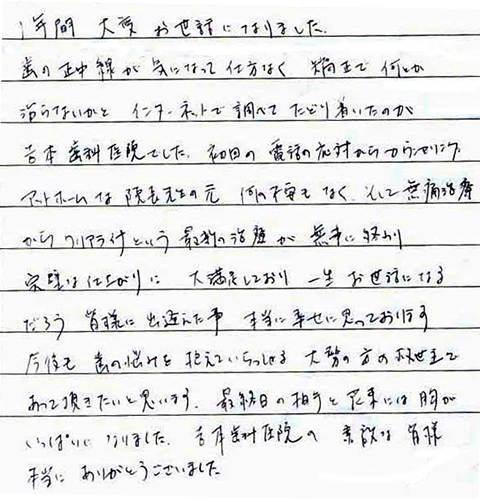 1年間 大変 お世話になりました.
歯の正中線が気になって仕方なく 矯正で何とか
治らないかと インターネットで調べて たどり着いたのが
吉本歯科医院でした. 初回の電話の応対からカウンセリング
アットホームな院長先生の元 何の不安もなく、そして無痛治療
からクリアライナーという最新の治療が無事に終わり
完璧な仕上がりに 大満足しており 一生お世話になる
だろう 皆様に出逢えた事 本当に幸せに思っております
今後も 歯の悩みを抱えていらっしゃる 大勢の方の救世主で
あって頂きたいと思います. 最終日の拍手と花束には胸が
いっぱいになりました. 吉本歯科医院の 素敵な皆様
本当に ありがとうございました